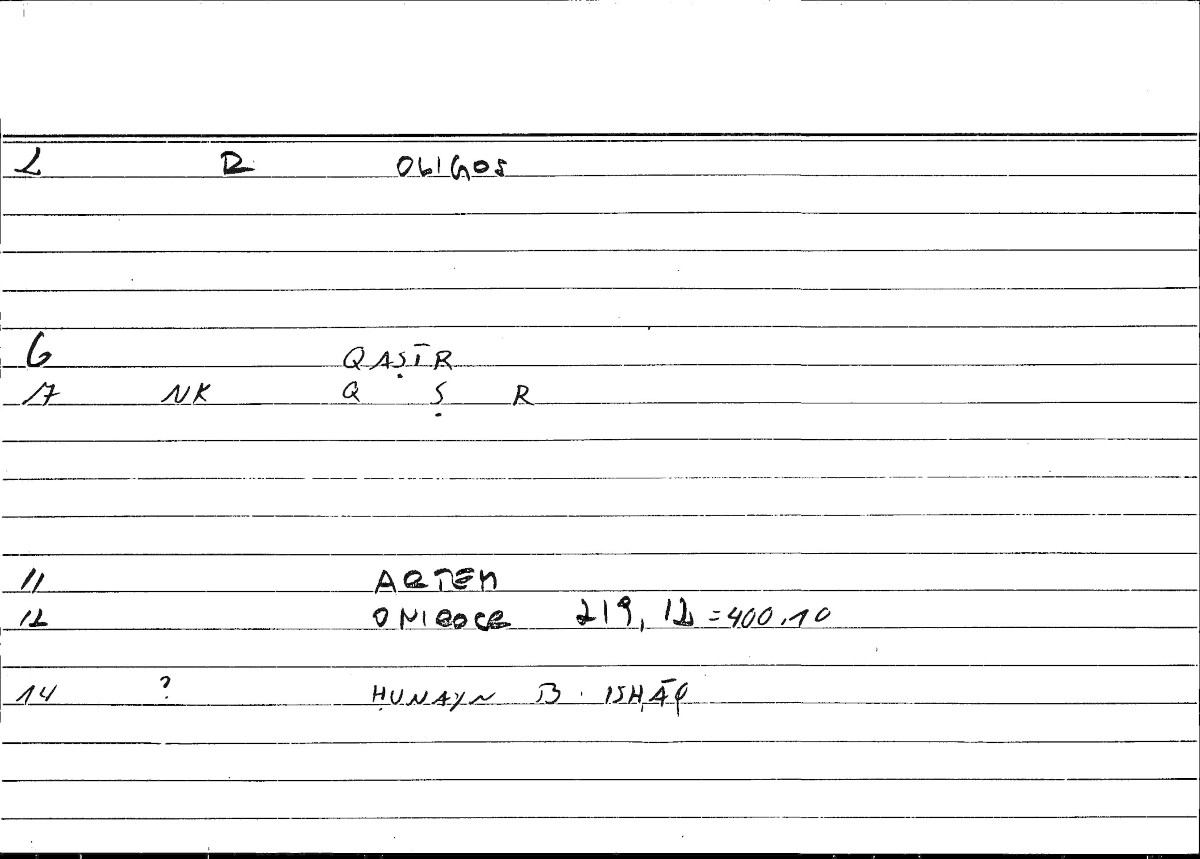 2 R OLIGOS
6 QAṢĪR
17 NK Q Ṣ R
11 ARTEM
12 ONIROCR 219, 12 = 400.10
14 ? ḤUNAYN B. ISḤĀQ